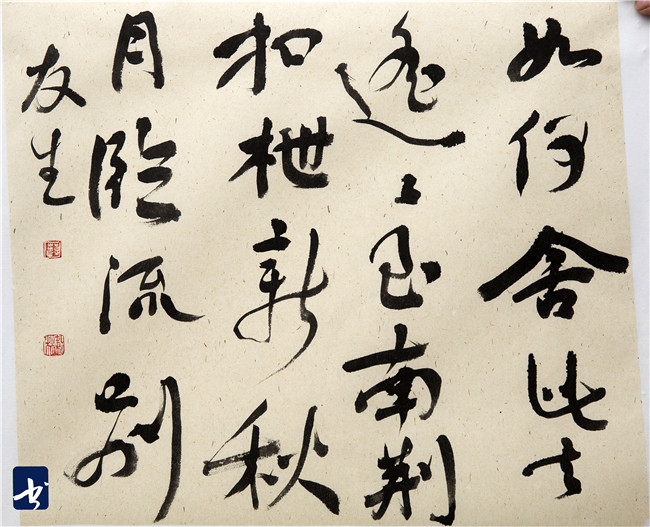 如何舍此去
遥〻至南荆
扣枻新秋
月臨流别
友生
书